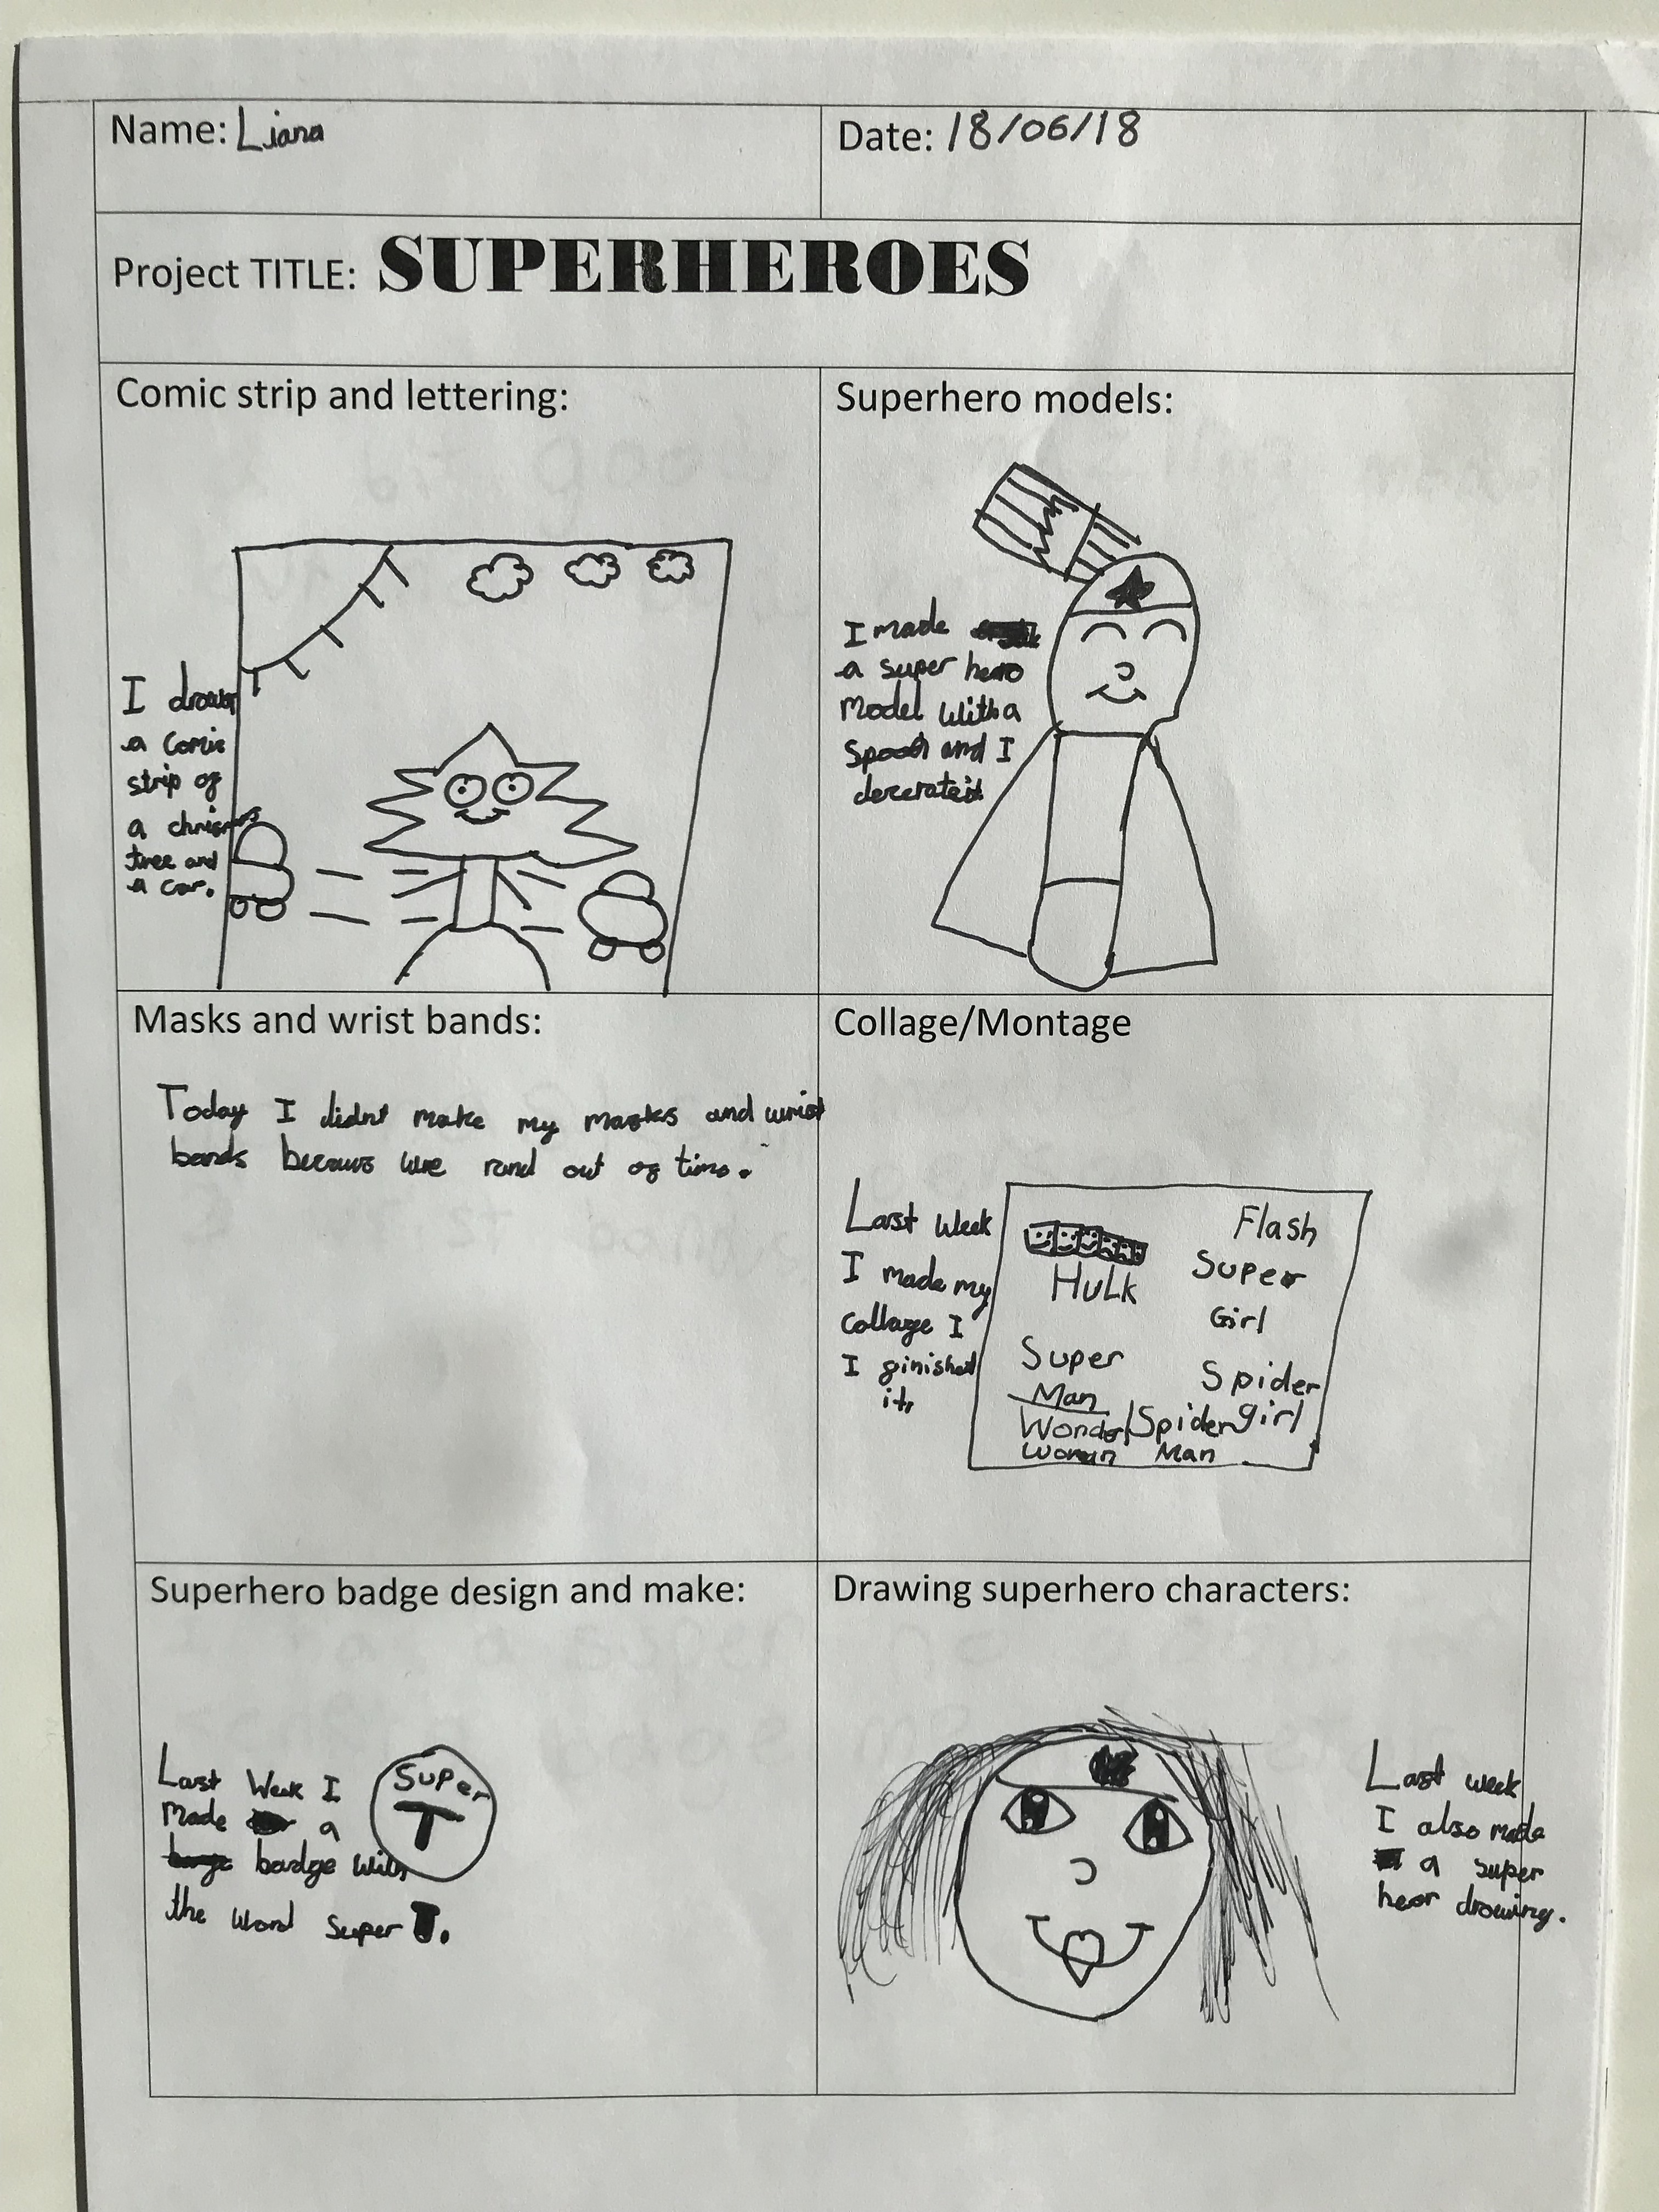 Name: Liana
Date: 18/06/18
Project TITLE: SUPERHEROES
Comic strip and lettering:
I drawr
a Comic
strip of
a chrismas
tree and
a car.
Superhero models:
I made
a super hero
Model with a
Spoon and I
decerated
Masks and wrist bands:
Today I didnt make my masks and wrist
bands because we rand out of time.
Collage/Montage
Last Week
I made my
collage I
I finished
it,
Flash
Hulk
Super
Girl
Super
Man
Spider
girl
Wonder
Woman
Spider
Man
Superhero badge design and make:
Last Week I
Made a
badge with
the word Super T.
Super
T
Drawing superhero characters:
Last week
I also made
a super
heor drowing.